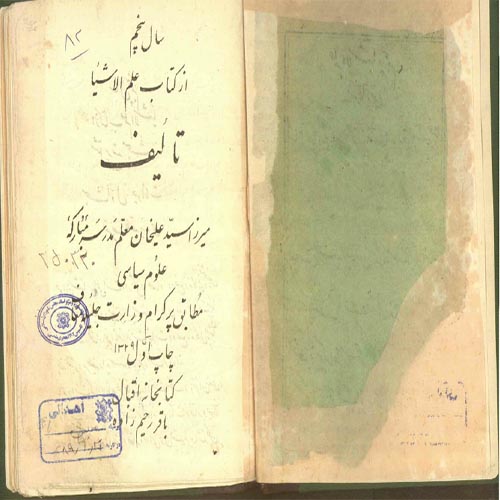 ۸۲
سال پنجم
از کتاب علم الاشیا
تألیف
میرزا سید علیخان معلم مدرسه مبارکهٔ
علوم سیاسی
مطابق پرگرام وزارت جلیله
چاپ اول ۱۳۲۹
کتابخانه اقبال
باقر رحیم زاده
اهدائی